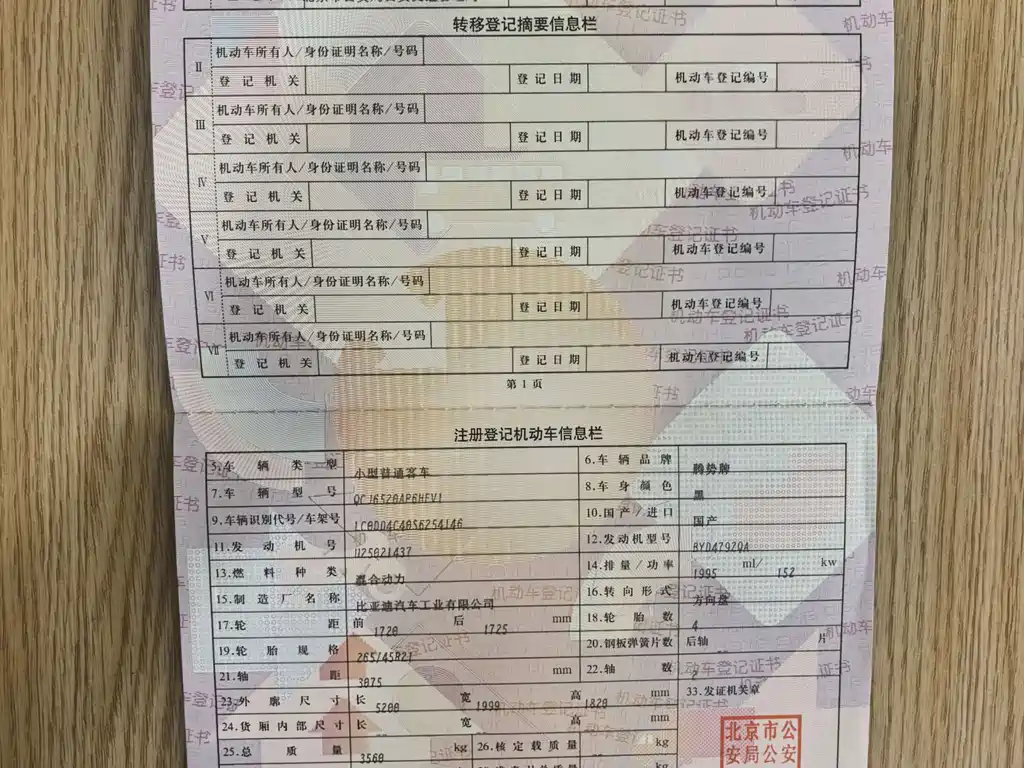 转移登记摘要信息栏
Ⅱ 机动车所有人/身份证明名称/号码
登记机关 登记日期 机动车登记编号
Ⅲ 机动车所有人/身份证明名称/号码
登记机关 登记日期 机动车登记编号
Ⅳ 机动车所有人/身份证明名称/号码
登记机关 登记日期 机动车登记编号
Ⅴ 机动车所有人/身份证明名称/号码
登记机关 登记日期 机动车登记编号
Ⅵ 机动车所有人/身份证明名称/号码
登记机关 登记日期 机动车登记编号
Ⅶ 机动车所有人/身份证明名称/号码
登记机关 登记日期 机动车登记编号
第1页
注册登记机动车信息栏
5.车辆类型 小型普通客车 6.车辆品牌 腾势牌
7.车辆型号 8.车身颜色 黑
9.车辆识别代号/车架号 10.国产/进口 国产
11.发动机号 U25021437 12.发动机型号 BYD479ZQA
13.燃料种类 混合动力 14.排量/功率 1995 ml/ 152 kw
15.制造厂名称 比亚迪汽车工业有限公司 16.转向形式 方向盘
17.轮距 前 1720 后 1725 mm 18.轮胎数 4
19.轮胎规格 265/45R21 20.钢板弹簧片数 后轴 片
21.轴距 3075 mm 22.轴数 2
23.外廓尺寸 长 5200 宽 1999 高 1820 mm 33.发证机关章
24.货厢内部尺寸 长 宽 高 mm
25.总质量 3560 kg 26.核定载质量 kg
北京市公
安局公安